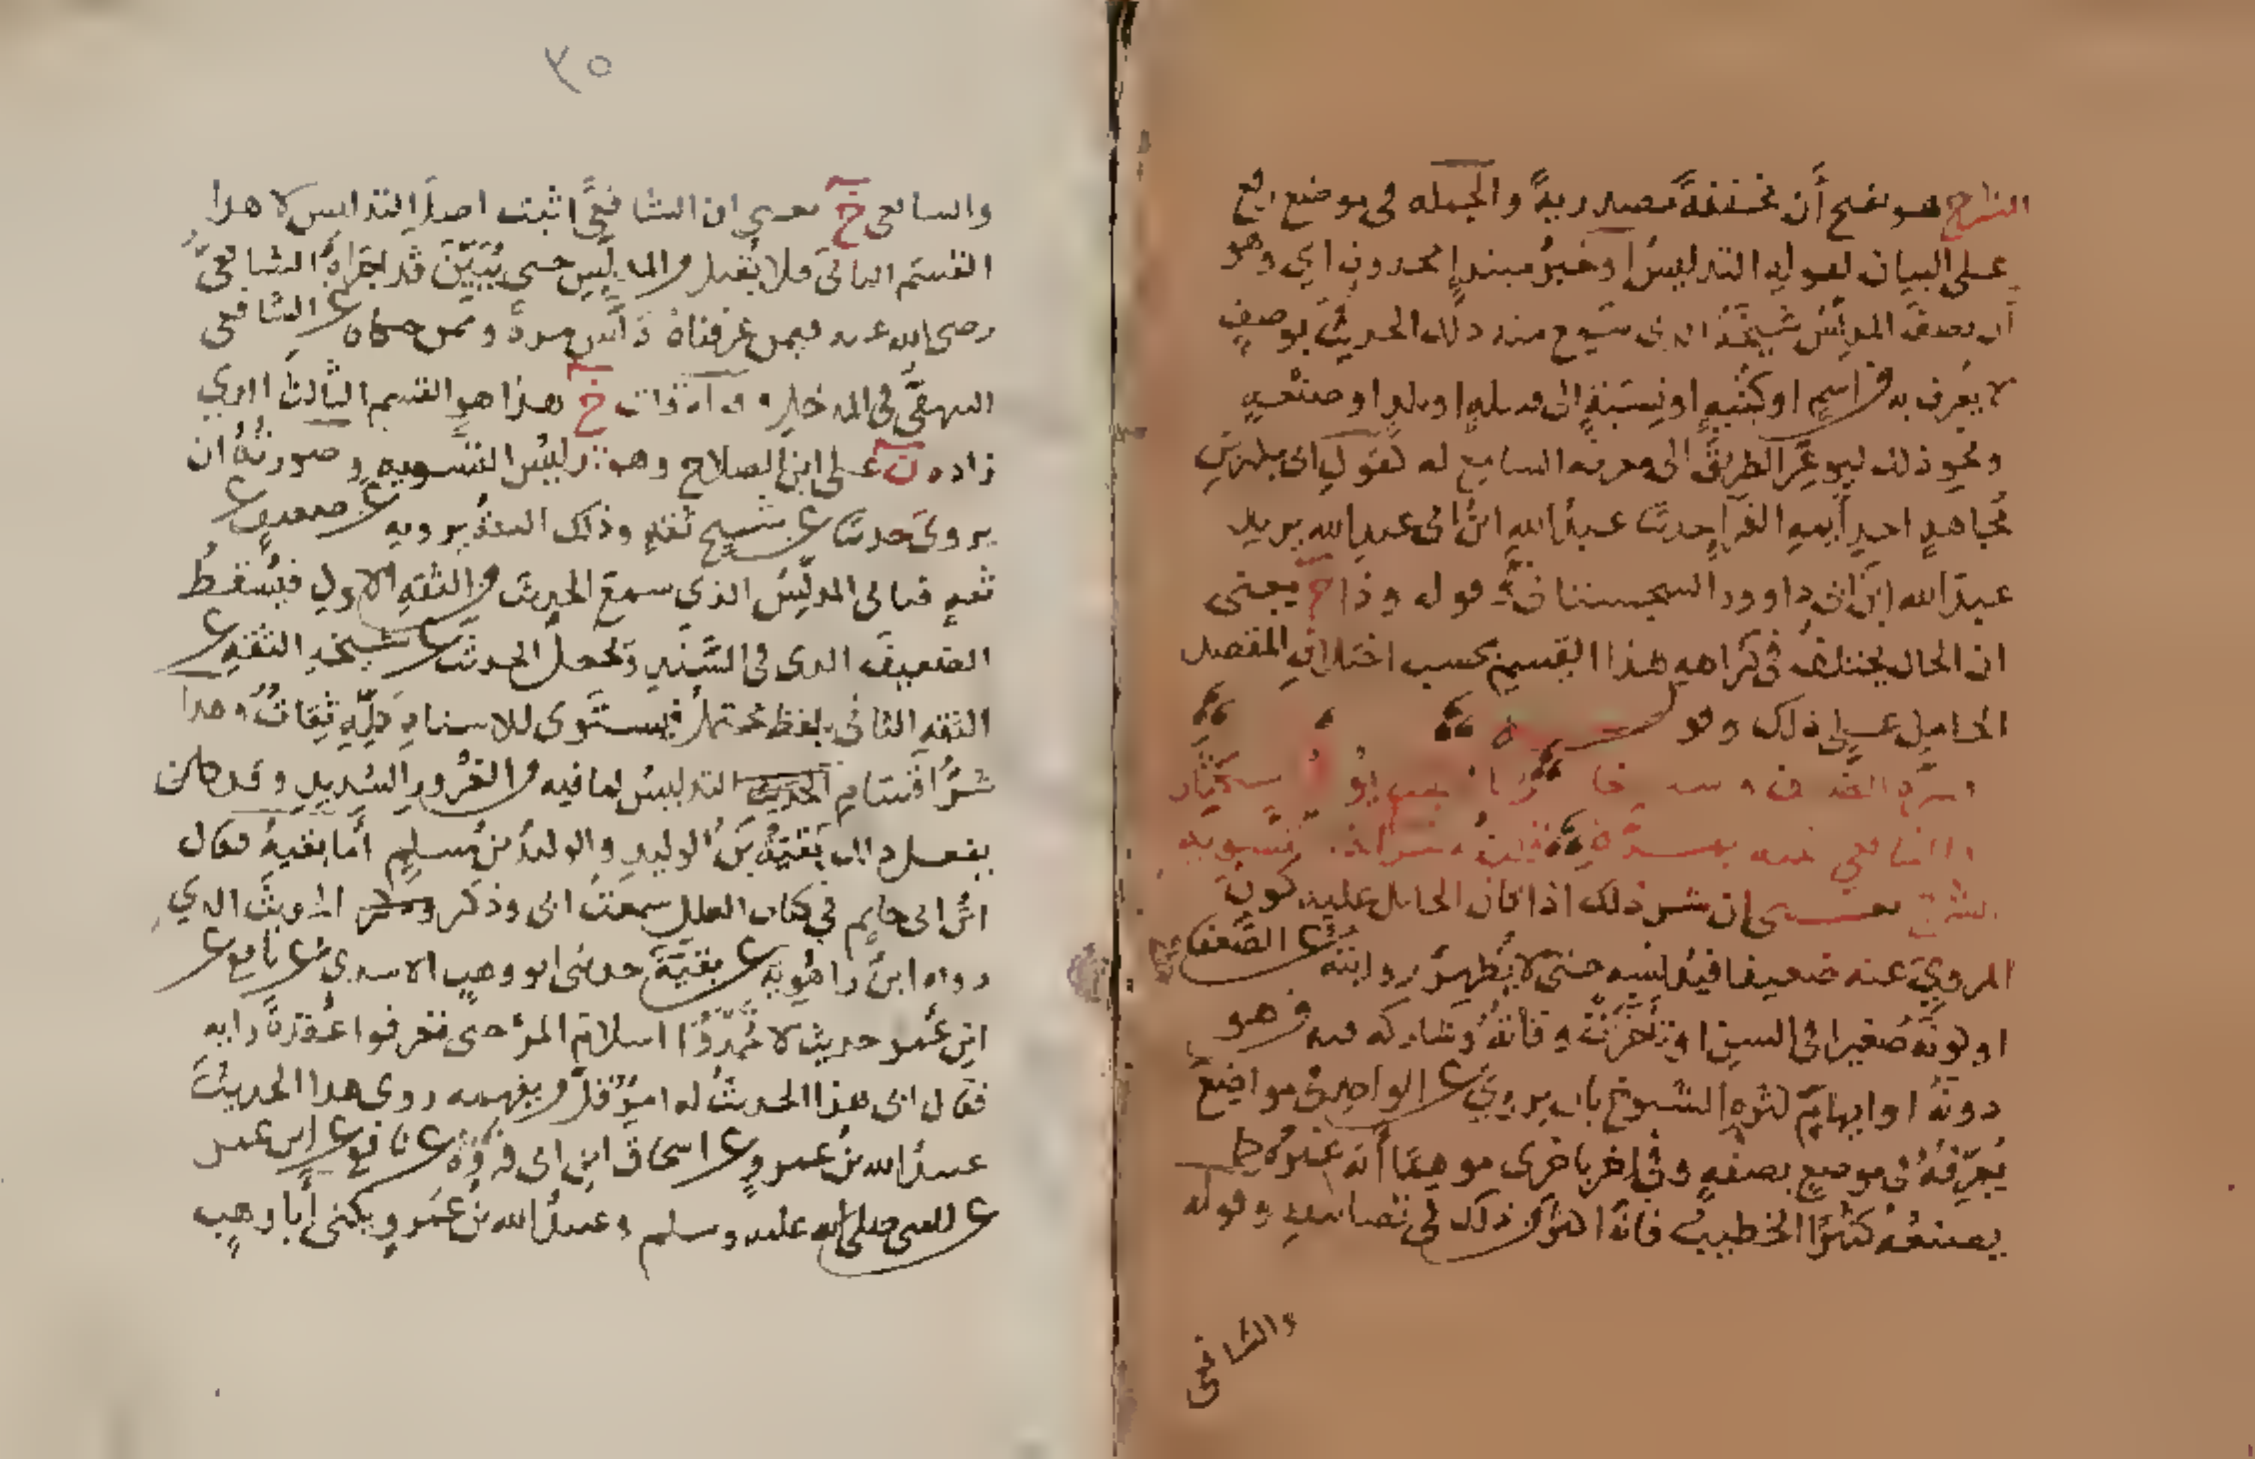 الشرح هو بفتح أن مخففةً مصدريةً والجمله في موضع رفع
على البيان لقوله التدليسُ او خبرُ مبتدإ محذوفٍ اي وهو
أن يصفَ المدلِّسُ شيخَهُ الذي سَمِع منه ذلك الحديثَ بوصفٍ
لا يُعرف به من اسمٍ او كُنْيَةٍ او نِسْبَةٍ الى قبيلةٍ او بلدٍ او صنعةٍ
ونحوِ ذلك ليوعِّرَ الطريقَ الى معرفة السامع له كقول ابى بكر بن
مُجاهدٍ احدِ أيمه القرا حدثنا عبدُ الله ابن ابى عبد الله يريد
عبدَ الله ابن ابى داوود السجستاني قوله وذا خ يعنى
ان الحال يختلف في كراهه هذا القسم بحسب اختلاف المقصد
الحامل على ذلك
الشرح يعنى ان شر ذلك اذا كان الحامل عليه كون
المروىِّ عنه ضعيفا فيدلسه حتى لا يُظهر روايته عن الضعفا
او كونه صغيرا فى السن او تأخرت وفاتُهُ وشاركه فيه من هو
دونهُ او ايهامِ كثرةِ الشيوخ بان يروىَ عن الواحد في مواضع
يُعرِّفهُ فى موضعٍ بصفةٍ وفى اخر باخرى موهِمًا أنه غيرُه
يصنعُهُ كثيرًا الخطيبُ فانه ذلك في تصانيفه وقوله
والشافعى
٣٥
والشافعى خ يعنى ان الشافعىَّ اثبت اصلَ التدليس لا هذا
القسم الثاني فلا يُقبل من المدلِّس حتى يُبَيِّنَ قد اجراهُ الشافعىُّ
رضي الله عنه فيمن عَرَفناهُ دَلَّس مرةً وممن حكاه عن الشافعى
البيهقىُّ في المدخل خ هذا هو القسم الثالث الذي
زاده ن على ابن الصلاح وهو تدليسُ التسوية وصورتُهُ ان
يروى حديثا عن شيخٍ ثقةٍ وذلك الثقةُ يرويه عن ضعيفٍ عن
ثقةٍ فياتى المدلِّسُ الذي سمع الحديث من الثقةِ الاول فيُسقطُ
الضعيفَ الذى في السَّنَدِ ويجعل الحديثَ عن شيخه الثقةِ عن
الثقةِ الثانى بلفظ محتملٍ فيستوى الاسناد كلُّه ثِقاتٌ وهذا
شرُّ اقسام الحديث التدليس لما فيه من الغُرورِ الشديدِ وقد كان
يفعل ذلك بَقيَّةُ بنُ الوليدِ والوليدُ بنُ مُسلمٍ أما بقيةُ فقال
ابنُ ابى حاتم في كتاب العلل سمعتُ ابى وذكر الحديثَ الذي
رواه ابنُ راهُويهْ عن بقيَّةَ حدثنى ابو وهبٍ الاسدى عن نافع عن
ابنِ عُمر حديث لا تحمدوا اسلامَ المرء حتى تعرفوا عُقدةَ رايه
فقال ابى هذا الحديثُ له امرٌ قلَّ من يفهمه روى هذا الحديثَ
عبيدُ الله بنُ عمروٍ عن اسحاقَ ابنِ ابى فَرْوَةَ عن نافع عن ابن عمر
عن النبى صلى الله عليه وسلم وعبيدُ الله بنُ عَمرٍو يكنى أبا وهب